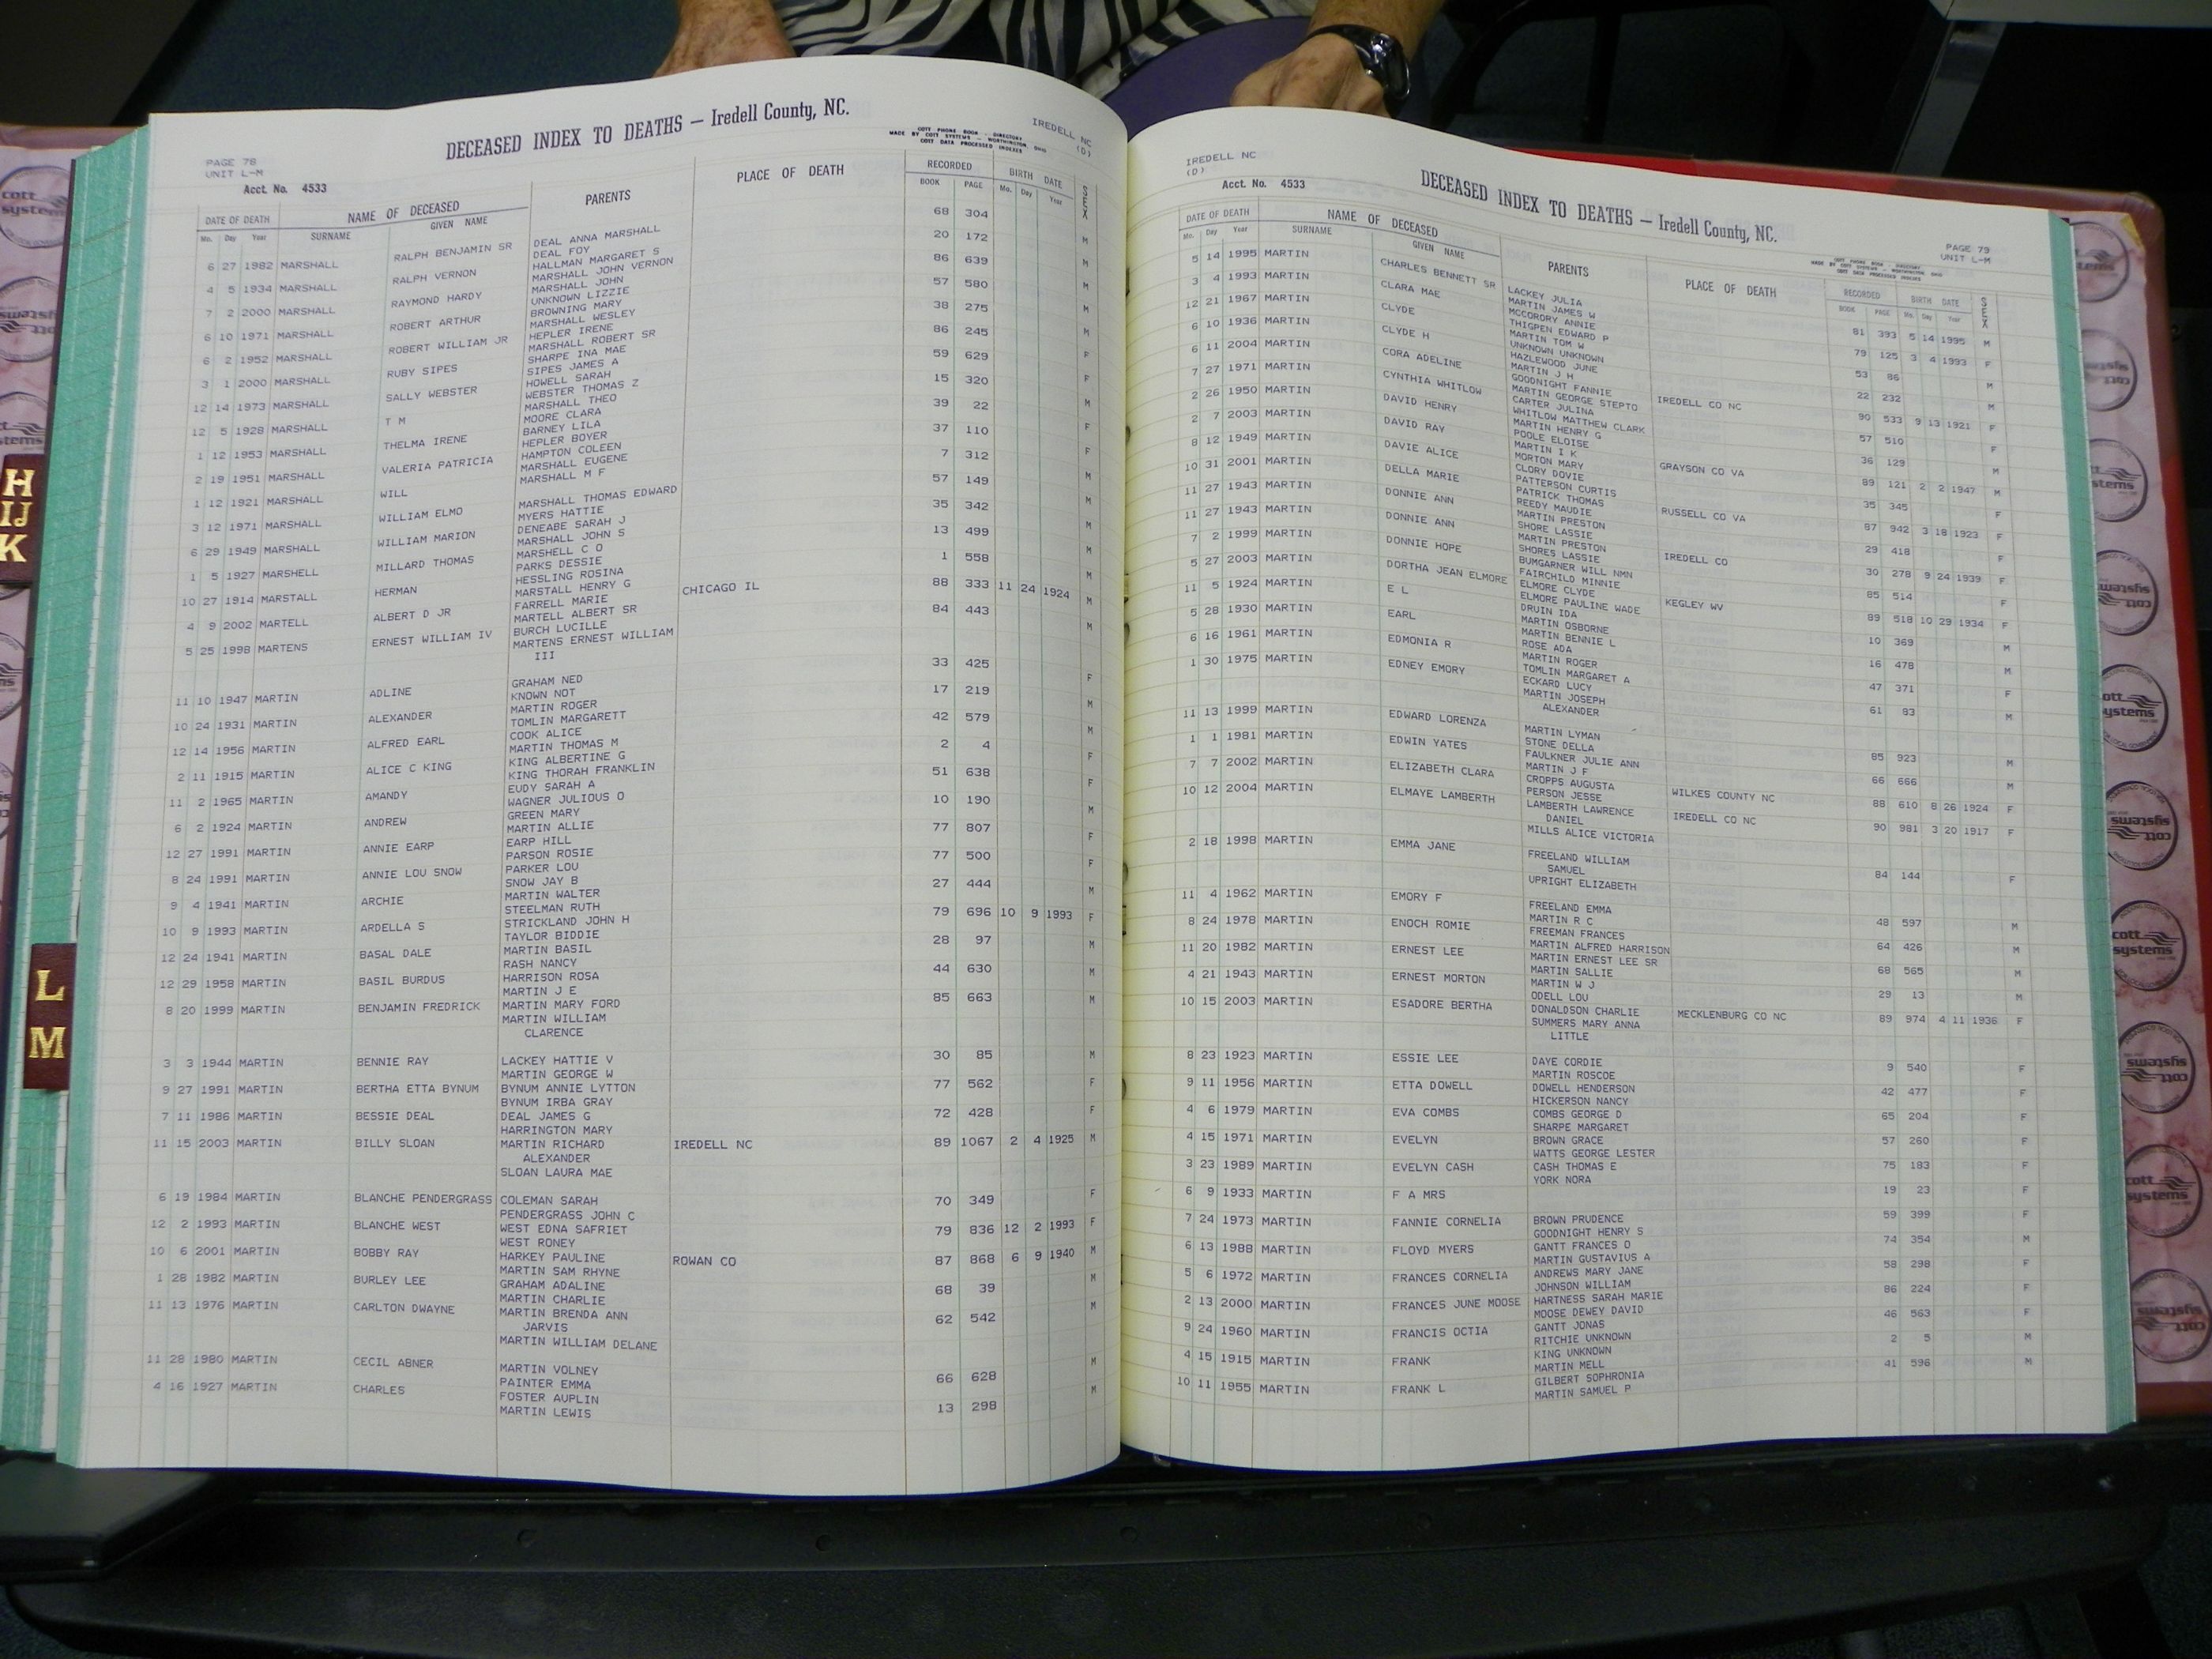 DECEASED INDEX TO DEATHS — Iredell County, NC.
IREDELL NC
(D)
COTT PHONE BOOK - DIRECTORY
MADE BY COTT SYSTEMS - WORTHINGTON, OHIO
COTT DATA PROCESSED INDEXES
PAGE 78
UNIT L-M
Acct. No. 4533
DATE OF DEATH NAME OF DECEASED PARENTS PLACE OF DEATH RECORDED BIRTH DATE SEX
Mo. Day Year SURNAME GIVEN NAME BOOK PAGE Mo. Day Year
6 27 1982 MARSHALL RALPH BENJAMIN SR DEAL ANNA MARSHALL 68 304 M
DEAL FOY
4 5 1934 MARSHALL RALPH VERNON HALLMAN MARGARET S 20 172 M
MARSHALL JOHN VERNON
7 2 2000 MARSHALL RAYMOND HARDY MARSHALL JOHN 86 639 M
UNKNOWN LIZZIE
6 10 1971 MARSHALL ROBERT ARTHUR BROWNING MARY 57 580 M
MARSHALL WESLEY
6 2 1952 MARSHALL ROBERT WILLIAM JR HEPLER IRENE 38 275 M
MARSHALL ROBERT SR
3 1 2000 MARSHALL RUBY SIPES SHARPE INA MAE 86 245 F
SIPES JAMES A
12 14 1973 MARSHALL SALLY WEBSTER HOWELL SARAH 59 629 F
WEBSTER THOMAS Z
12 5 1928 MARSHALL T M MARSHALL THEO 15 320 M
MOORE CLARA
1 12 1953 MARSHALL THELMA IRENE BARNEY LILA 39 22 F
HEPLER BOYER
2 19 1951 MARSHALL VALERIA PATRICIA HAMPTON COLEEN 37 110 F
MARSHALL EUGENE
1 12 1921 MARSHALL WILL MARSHALL M F 7 312 M
3 12 1971 MARSHALL WILLIAM ELMO MARSHALL THOMAS EDWARD 57 149 M
MYERS HATTIE
6 29 1949 MARSHALL WILLIAM MARION DENEABE SARAH J 35 342 M
MARSHALL JOHN S
1 5 1927 MARSHELL MILLARD THOMAS MARSHELL C O 13 499 M
PARKS DESSIE
10 27 1914 MARSTALL HERMAN HESSLING ROSINA 1 558 M
MARSTALL HENRY G
4 9 2002 MARTELL ALBERT D JR FARRELL MARIE CHICAGO IL 88 333 11 24 1924 M
MARTELL ALBERT SR
5 25 1998 MARTENS ERNEST WILLIAM IV BURCH LUCILLE 84 443 M
MARTENS ERNEST WILLIAM
III
11 10 1947 MARTIN ADLINE GRAHAM NED 33 425 F
KNOWN NOT
10 24 1931 MARTIN ALEXANDER MARTIN ROGER 17 219 M
TOMLIN MARGARETT
12 14 1956 MARTIN ALFRED EARL COOK ALICE 42 579 M
MARTIN THOMAS M
2 11 1915 MARTIN ALICE C KING KING ALBERTINE G 2 4 F
KING THORAH FRANKLIN
11 2 1965 MARTIN AMANDY EUDY SARAH A 51 638 F
WAGNER JULIOUS O
6 2 1924 MARTIN ANDREW GREEN MARY 10 190 M
MARTIN ALLIE
12 27 1991 MARTIN ANNIE EARP EARP HILL 77 807 F
PARSON ROSIE
8 24 1991 MARTIN ANNIE LOU SNOW PARKER LOU 77 500 F
SNOW JAY B
9 4 1941 MARTIN ARCHIE MARTIN WALTER 27 444 M
STEELMAN RUTH
10 9 1993 MARTIN ARDELLA S STRICKLAND JOHN H 79 696 10 9 1993 F
TAYLOR BIDDIE
12 24 1941 MARTIN BASAL DALE MARTIN BASIL 28 97 M
RASH NANCY
12 29 1958 MARTIN BASIL BURDUS HARRISON ROSA 44 630 M
MARTIN J E
8 20 1999 MARTIN BENJAMIN FREDRICK MARTIN MARY FORD 85 663 M
MARTIN WILLIAM
CLARENCE
3 3 1944 MARTIN BENNIE RAY LACKEY HATTIE V 30 85 M
MARTIN GEORGE W
9 27 1991 MARTIN BERTHA ETTA BYNUM BYNUM ANNIE LYTTON 77 562 F
BYNUM IRBA GRAY
7 11 1986 MARTIN BESSIE DEAL DEAL JAMES G 72 428 F
HARRINGTON MARY
11 15 2003 MARTIN BILLY SLOAN MARTIN RICHARD IREDELL NC 89 1067 2 4 1925 M
ALEXANDER
SLOAN LAURA MAE
6 19 1984 MARTIN BLANCHE PENDERGRASS COLEMAN SARAH 70 349 F
PENDERGRASS JOHN C
12 2 1993 MARTIN BLANCHE WEST WEST EDNA SAFRIET 79 836 12 2 1993 F
WEST RONEY
10 6 2001 MARTIN BOBBY RAY HARKEY PAULINE ROWAN CO 87 868 6 9 1940 M
MARTIN SAM RHYNE
1 28 1982 MARTIN BURLEY LEE GRAHAM ADALINE 68 39 M
MARTIN CHARLIE
11 13 1976 MARTIN CARLTON DWAYNE MARTIN BRENDA ANN 62 542 M
JARVIS
MARTIN WILLIAM DELANE
11 28 1980 MARTIN CECIL ABNER MARTIN VOLNEY 66 628 M
PAINTER EMMA
4 16 1927 MARTIN CHARLES FOSTER AUPLIN 13 298 M
MARTIN LEWIS
IREDELL NC
(D)
Acct. No. 4533
DECEASED INDEX TO DEATHS — Iredell County, NC.
PAGE 79
UNIT L-M
DATE OF DEATH NAME OF DECEASED PARENTS PLACE OF DEATH RECORDED BIRTH DATE SEX
Mo. Day Year SURNAME GIVEN NAME BOOK PAGE Mo. Day Year
5 14 1995 MARTIN CHARLES BENNETT SR LACKEY JULIA 81 393 5 14 1995 M
MARTIN JAMES W
3 4 1993 MARTIN CLARA MAE MCCORDRY ANNIE 79 125 3 4 1993 F
THIGPEN EDWARD P
12 21 1967 MARTIN CLYDE MARTIN TOM W 53 86 M
UNKNOWN UNKNOWN
6 10 1936 MARTIN CLYDE H HAZLEWOOD JUNE 22 232 M
MARTIN J H
6 11 2004 MARTIN CORA ADELINE GOODNIGHT FANNIE IREDELL CO NC 90 533 9 13 1921 F
MARTIN GEORGE STEPTO
7 27 1971 MARTIN CYNTHIA WHITLOW CARTER JULINA 57 510 F
WHITLOW MATTHEW CLARK
2 26 1950 MARTIN DAVID HENRY MARTIN HENRY G 36 129 M
POOLE ELOISE
2 7 2003 MARTIN DAVID RAY MARTIN I K GRAYSON CO VA 89 121 2 2 1947 M
MORTON MARY
8 12 1949 MARTIN DAVIE ALICE CLORY DOVIE 35 345 F
PATTERSON CURTIS
10 31 2001 MARTIN DELLA MARIE PATRICK THOMAS RUSSELL CO VA 87 942 3 18 1923 F
REEDY MAUDIE
11 27 1943 MARTIN DONNIE ANN MARTIN PRESTON 29 418 F
SHORE LASSIE
11 27 1943 MARTIN DONNIE ANN MARTIN PRESTON IREDELL CO 30 278 9 24 1939 F
SHORES LASSIE
7 2 1999 MARTIN DONNIE HOPE BUMGARNER WILL NMN 85 514 F
FAIRCHILD MINNIE
5 27 2003 MARTIN DORTHA JEAN ELMORE ELMORE CLYDE KEGLEY WV 89 518 10 29 1934 F
ELMORE PAULINE WADE
11 5 1924 MARTIN E L DRUIN IDA 10 369 M
MARTIN OSBORNE
5 28 1930 MARTIN EARL MARTIN BENNIE L 16 478 M
ROSE ADA
6 16 1961 MARTIN EDMONIA R MARTIN ROGER 47 371 F
TOMLIN MARGARET A
1 30 1975 MARTIN EDNEY EMORY ECKARD LUCY 61 83 M
MARTIN JOSEPH
ALEXANDER
11 13 1999 MARTIN EDWARD LORENZA MARTIN LYMAN 85 923 M
STONE DELLA
1 1 1981 MARTIN EDWIN YATES FAULKNER JULIE ANN 66 666 M
MARTIN J F
7 7 2002 MARTIN ELIZABETH CLARA CROPPS AUGUSTA WILKES COUNTY NC 88 610 8 26 1924 F
PERSON JESSE
10 12 2004 MARTIN ELMAYE LAMBERTH LAMBERTH LAWRENCE IREDELL CO NC 90 981 3 20 1917 F
DANIEL
MILLS ALICE VICTORIA
2 18 1998 MARTIN EMMA JANE FREELAND WILLIAM 84 144 F
SAMUEL
UPRIGHT ELIZABETH
11 4 1962 MARTIN EMORY F FREELAND EMMA 48 597 M
MARTIN R C
8 24 1978 MARTIN ENOCH ROMIE FREEMAN FRANCES 64 426 M
MARTIN ALFRED HARRISON
11 20 1982 MARTIN ERNEST LEE MARTIN ERNEST LEE SR 68 565 M
MARTIN SALLIE
4 21 1943 MARTIN ERNEST MORTON MARTIN W J 29 13 M
ODELL LOU
10 15 2003 MARTIN ESADORE BERTHA DONALDSON CHARLIE MECKLENBURG CO NC 89 974 4 11 1936 F
SUMMERS MARY ANNA
LITTLE
8 23 1923 MARTIN ESSIE LEE DAYE CORDIE 9 540 F
MARTIN ROSCOE
9 11 1956 MARTIN ETTA DOWELL DOWELL HENDERSON 42 477 F
HICKERSON NANCY
4 6 1979 MARTIN EVA COMBS COMBS GEORGE D 65 204 F
SHARPE MARGARET
4 15 1971 MARTIN EVELYN BROWN GRACE 57 260 F
WATTS GEORGE LESTER
3 23 1989 MARTIN EVELYN CASH CASH THOMAS E 75 183 F
YORK NORA
6 9 1933 MARTIN F A MRS 19 23 F
7 24 1973 MARTIN FANNIE CORNELIA BROWN PRUDENCE 59 399 F
GOODNIGHT HENRY S
6 13 1988 MARTIN FLOYD MYERS GANTT FRANCES O 74 354 M
MARTIN GUSTAVIUS A
5 6 1972 MARTIN FRANCES CORNELIA ANDREWS MARY JANE 58 298 F
JOHNSON WILLIAM
2 13 2000 MARTIN FRANCES JUNE MOOSE HARTNESS SARAH MARIE 86 224 F
MOOSE DEWEY DAVID
9 24 1960 MARTIN FRANCIS OCTIA GANTT JONAS 46 563 F
RITCHIE UNKNOWN
4 15 1915 MARTIN FRANK KING UNKNOWN 2 5 M
MARTIN MELL
10 11 1955 MARTIN FRANK L GILBERT SOPHRONIA 41 596 M
MARTIN SAMUEL P
H
IJ
K
L
M
cott
systems